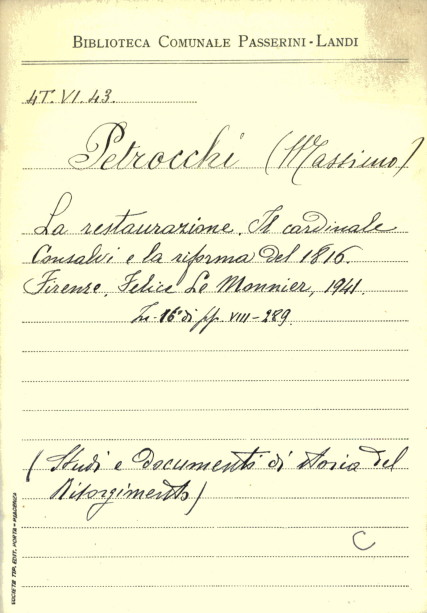 BIBLIOTECA COMUNALE PASSERINI-LANDI
4T. VI. 43.
Petrocchi (Massimo)
La restaurazione. Il cardinale
Consalvi e la riforma del 1816.
Firenze, Felice Le Monnier, 1941.
In-16° di pp. VIII-289.
(Studi e documenti di storia del
Risorgimento)
C
SOCIETÀ TIP. EDIT. PORTA - PIACENZA